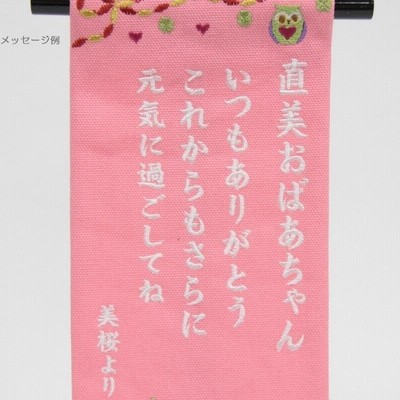 メッセージ例
直美おばあちゃん
いつもありがとう
これからもさらに
元気に過ごしてね
美桜より